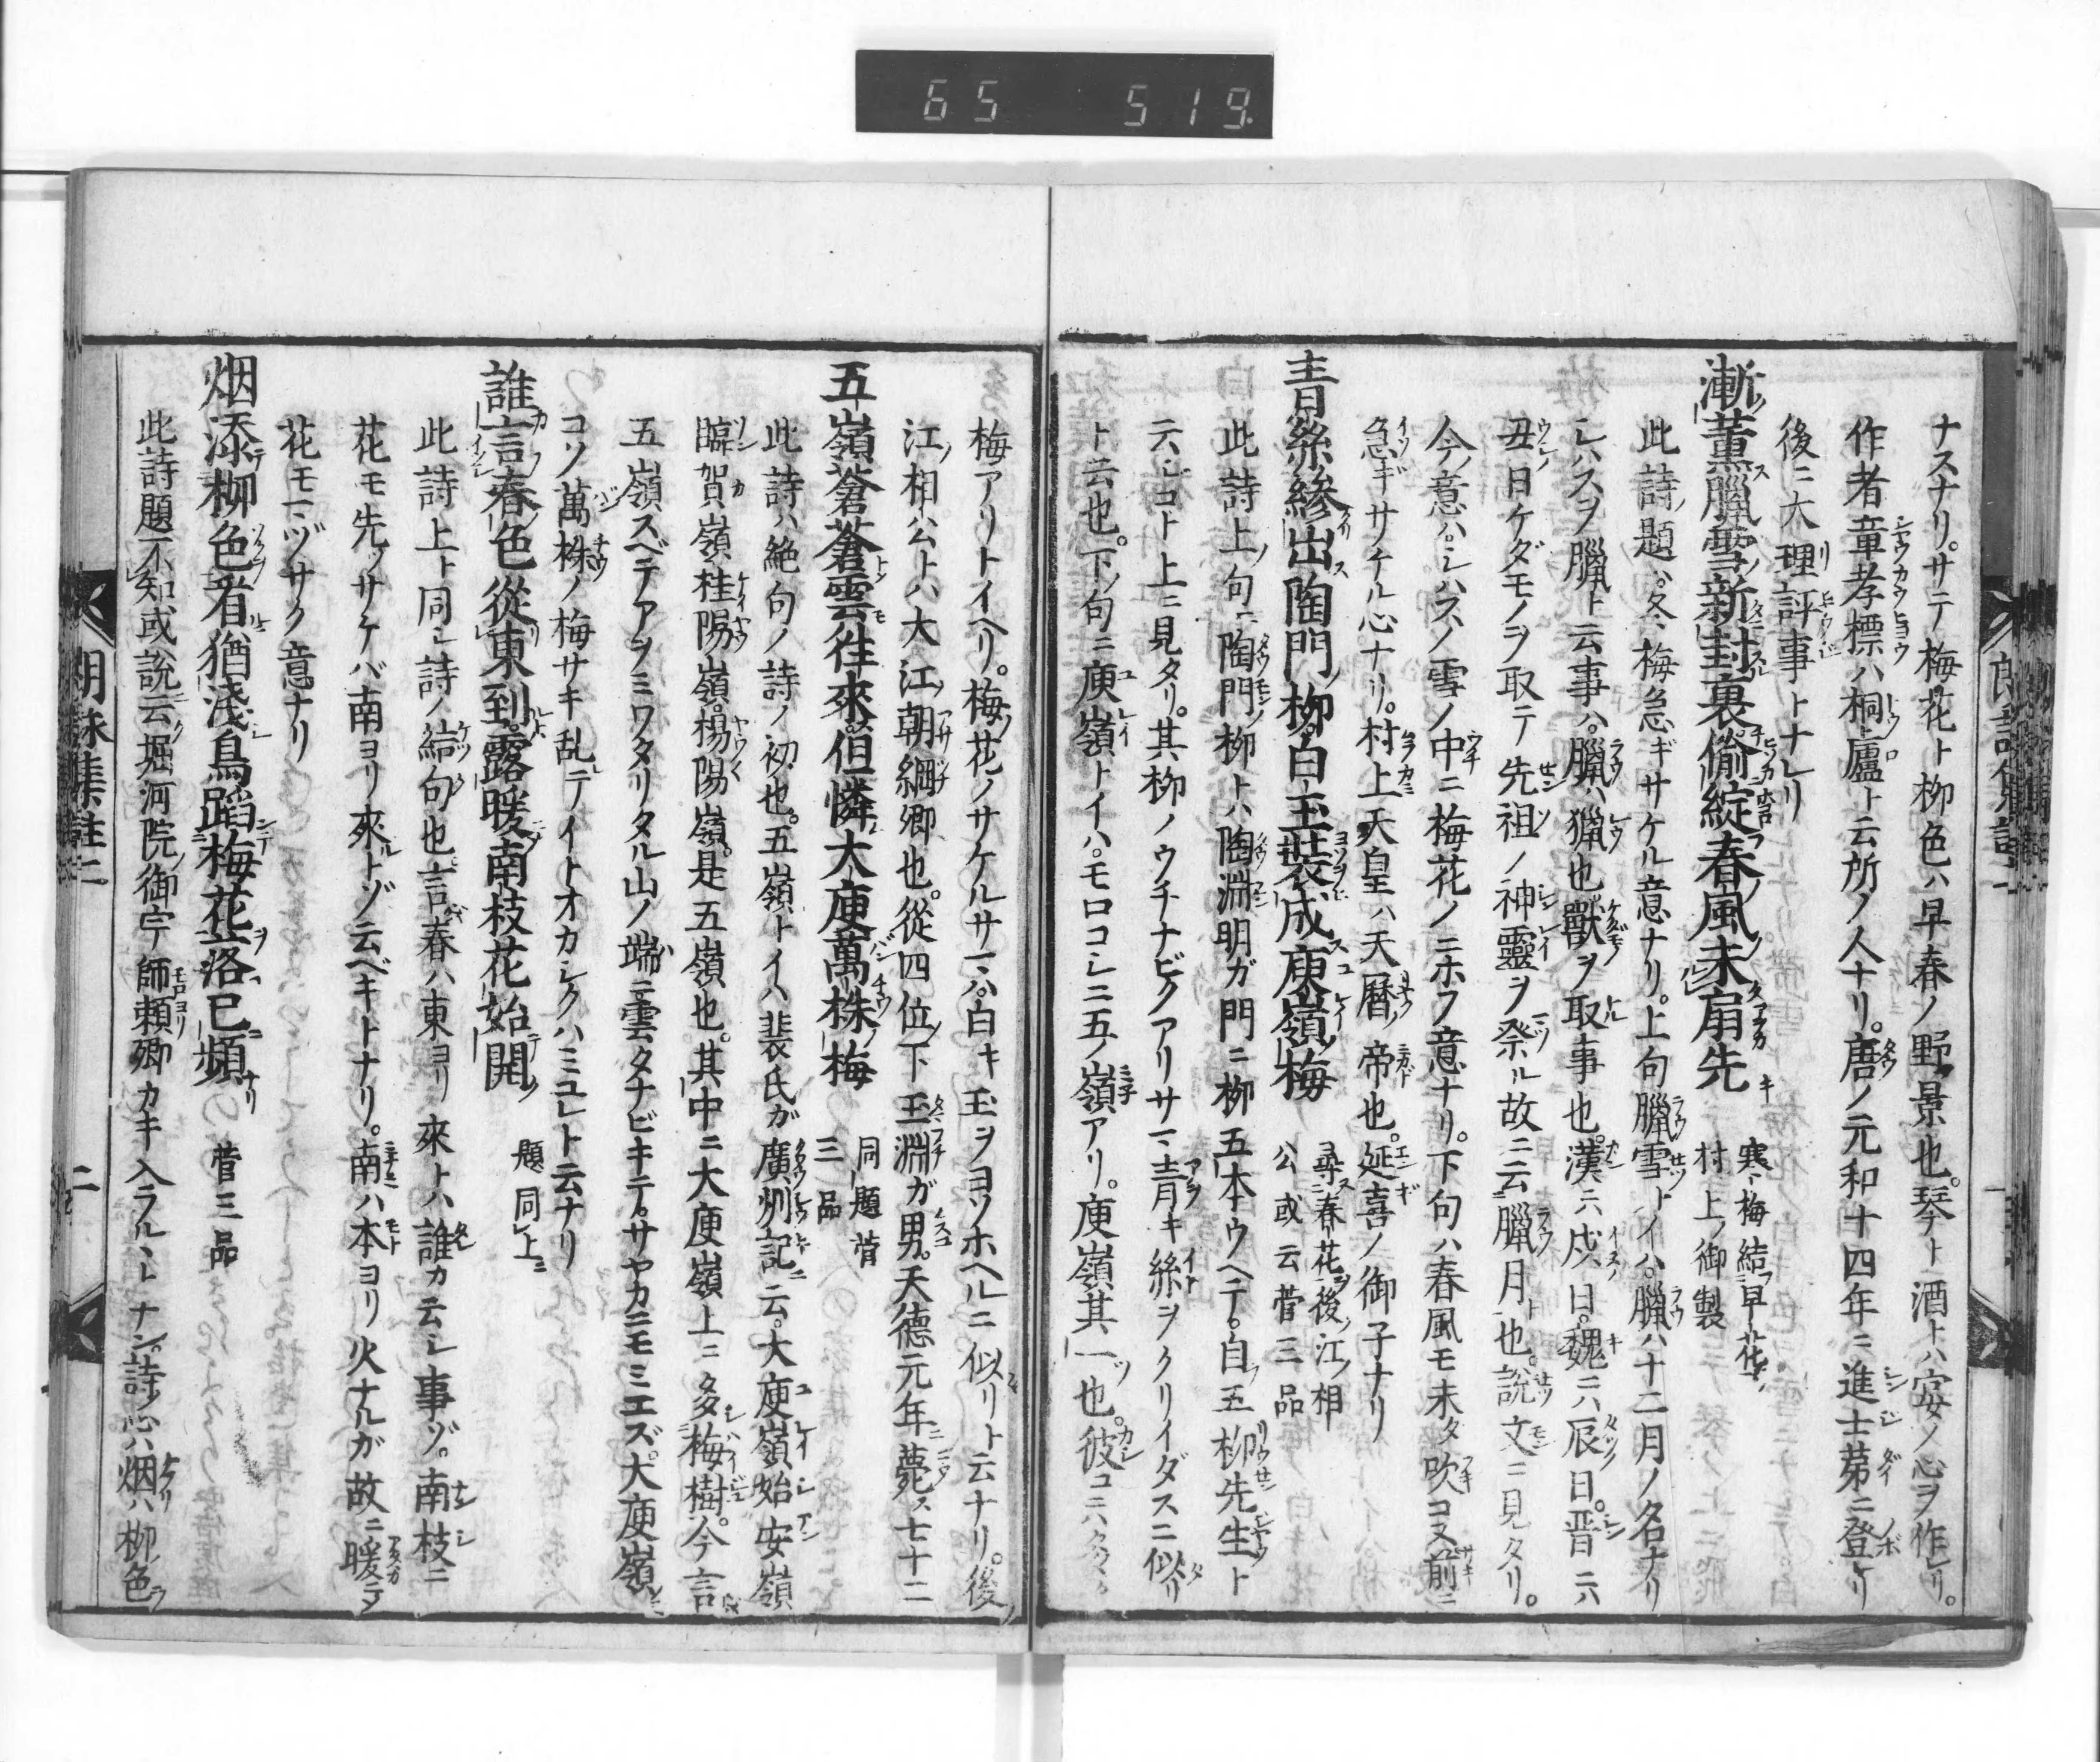 65 519.
ナスナリ。サテ梅花ト柳色ハ早春ノ野景也。琴ト酒トハ安ノ心ヲ作レリ。
作者章孝標ハ桐廬ト云所ノ人ナリ。唐ノ元和十四年ニ進士第ニ登レリ
後ニ大理評事トナレリ
漸薫臘雪新封裏偸綻春風未扇先
寒梅結早花
村上御製
此詩題ハ冬梅急ギサケル意ナリ。上句臘雪トイハ臘ハ十二月ノ名ナリ
シハスヲ臘ト云事ハ臘ハ獵也獸ヲ取事也。漢ニハ戌日。魏ニハ辰日。晋ニハ
丑日ケダモノヲ取テ先祖ノ神靈ヲ祭ル故ニ云臘月ト也。説文ニ見タリ。
今ノ意ハシハスノ雪ノ中ニ梅花ノニホフ意ナリ。下句ハ春風モ未タ吹コヌ前ニ
急ギサケル心ナリ。村上天皇ハ天曆ノ帝也。延喜ノ御子ナリ
青絲縿出陶門柳白玉装成庾嶺梅
尋春花後江相
公或云菅三品
此詩上ノ句ニ陶門柳トハ陶淵明ガ門ニ柳五本ウヘテ。自五柳先生ト
云シコト上ニ見タリ。其柳ノウチナビクアリサマ青キ絲ヲクリイダスニ似リ
ト云也。下ノ句ニ庾嶺トイハモロコシニ五ノ嶺アリ。庾嶺其一也。彼コニハ
梅アリトイヘリ。梅花ノサケルサマハ白キ玉ヲヨソホヘルニ似リト云ナリ。後
江相公トハ大江朝綱卿也。從四位下玉淵ガ男。天德元年ニ薨ス七十二
五嶺蒼蒼雲往來但憐大庾萬株梅
同題菅
三品
此詩ハ絶句ノ詩ノ初也。五嶺トイハ裴氏ガ廣州記ニ云。大庾嶺始安嶺
臨賀嶺桂陽嶺。揚陽嶺。是五嶺也。其中ニ大庾嶺上ニ多梅樹。今言
五嶺スベテアヲミワタリタル山ノ端ニ雲タナビキテ。サヤカニモミエズ。大庾嶺
コソ萬株ノ梅サキ乱テイトオカシクハミユレト云ナリ
誰言春色從東到露暖南枝花始開
題同上
此詩上ト同シ詩ノ結句也。言春ハ東ヨリ來トハ誰カ云シ事ゾ。南枝ニ
花モ先ツサケバ南ヨリ來トゾ云ベキトナリ。南ハ本ヨリ火ナルガ故ニ暖テ
花モマヅサク意ナリ
烟添柳色看猶淺鳥蹈梅花落已頻
菅三品
此詩題不知或説云堀河院御宇師頼卿カキ入ラルヽトナン。詩ノ心ハ烟ハ柳色
朗詠集註二
二